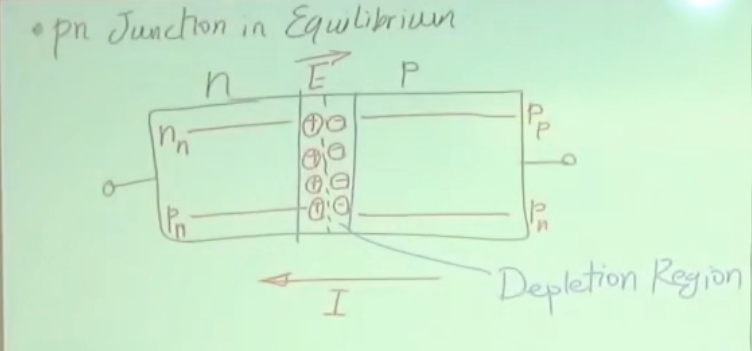 • pn Junction in Equilibrium
n E P
n_n P_p
⊕ ⊖
⊕ ⊖
⊕ ⊖
⊕ ⊖
P_n P_n
I
Depletion Region